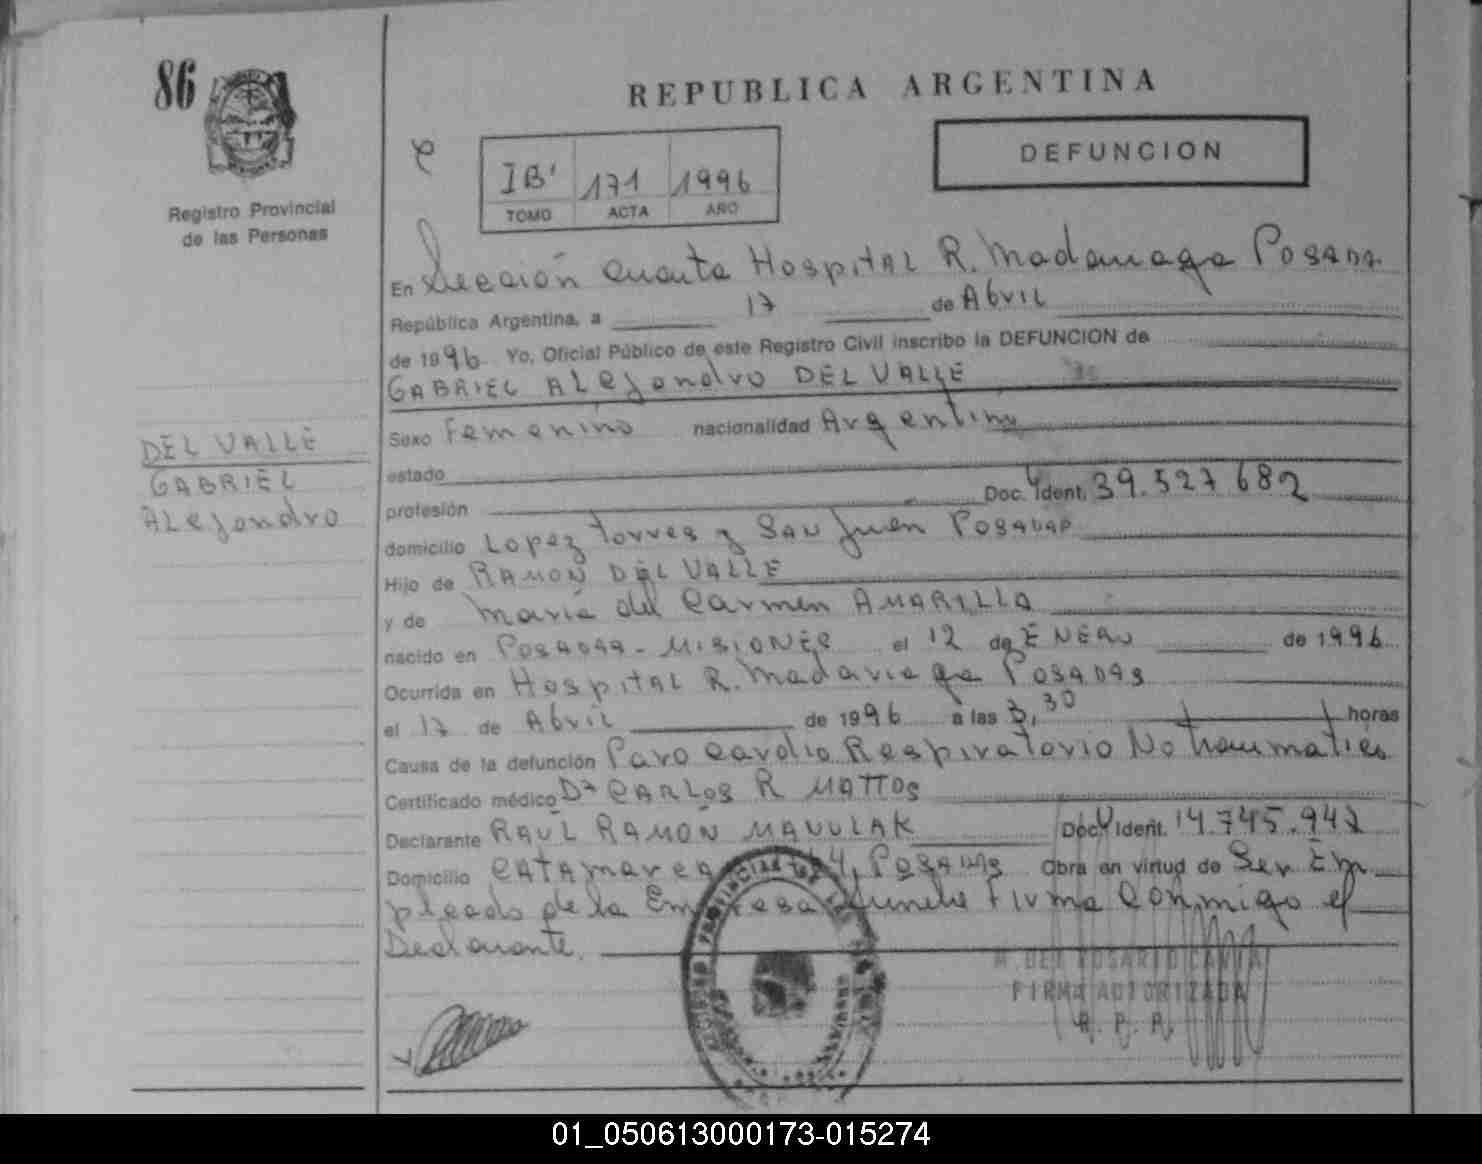 86
REPUBLICA ARGENTINA
DEFUNCION
IB' 171 1996
TOMO ACTA AÑO
Registro Provincial
de las Personas
En Sección Cuarta Hospital R. Madariaga Posadas
República Argentina, a 17 de Abril
de 1996 Yo, Oficial Público de este Registro Civil inscribo la DEFUNCION de
GABRIEL ALejandro DEL VALLE
Sexo Femenino nacionalidad Argentino
DEL VALLE
GABRIEL
ALejandro
estado
profesión Doc. Ident. 39.527.682
domicilio Lopez Torres y San Juan Posadas
Hijo de RAMON DEL VALLE
y de Maria del Carmen AMARILLA
nacido en Posadas - Misiones el 12 de ENERO de 1996
Ocurrida en Hospital R. Madariaga Posadas
el 17 de Abril de 1996 a las 3,30 horas
Causa de la defunción Paro Cardio Respiratorio No traumatico
Certificado médico Dr CARLOS R MATTOS
Declarante RAUL RAMON MANULAK Doc. Ident. 14.745.942
Domicilio CATAmarca 4, Posadas Obra en virtud de Ser Em
pleado de la Empresa Funebre Firma Conmigo el
Declarante.
FIRMA AUTORIZADA
R. P. P.
01_050613000173-015274